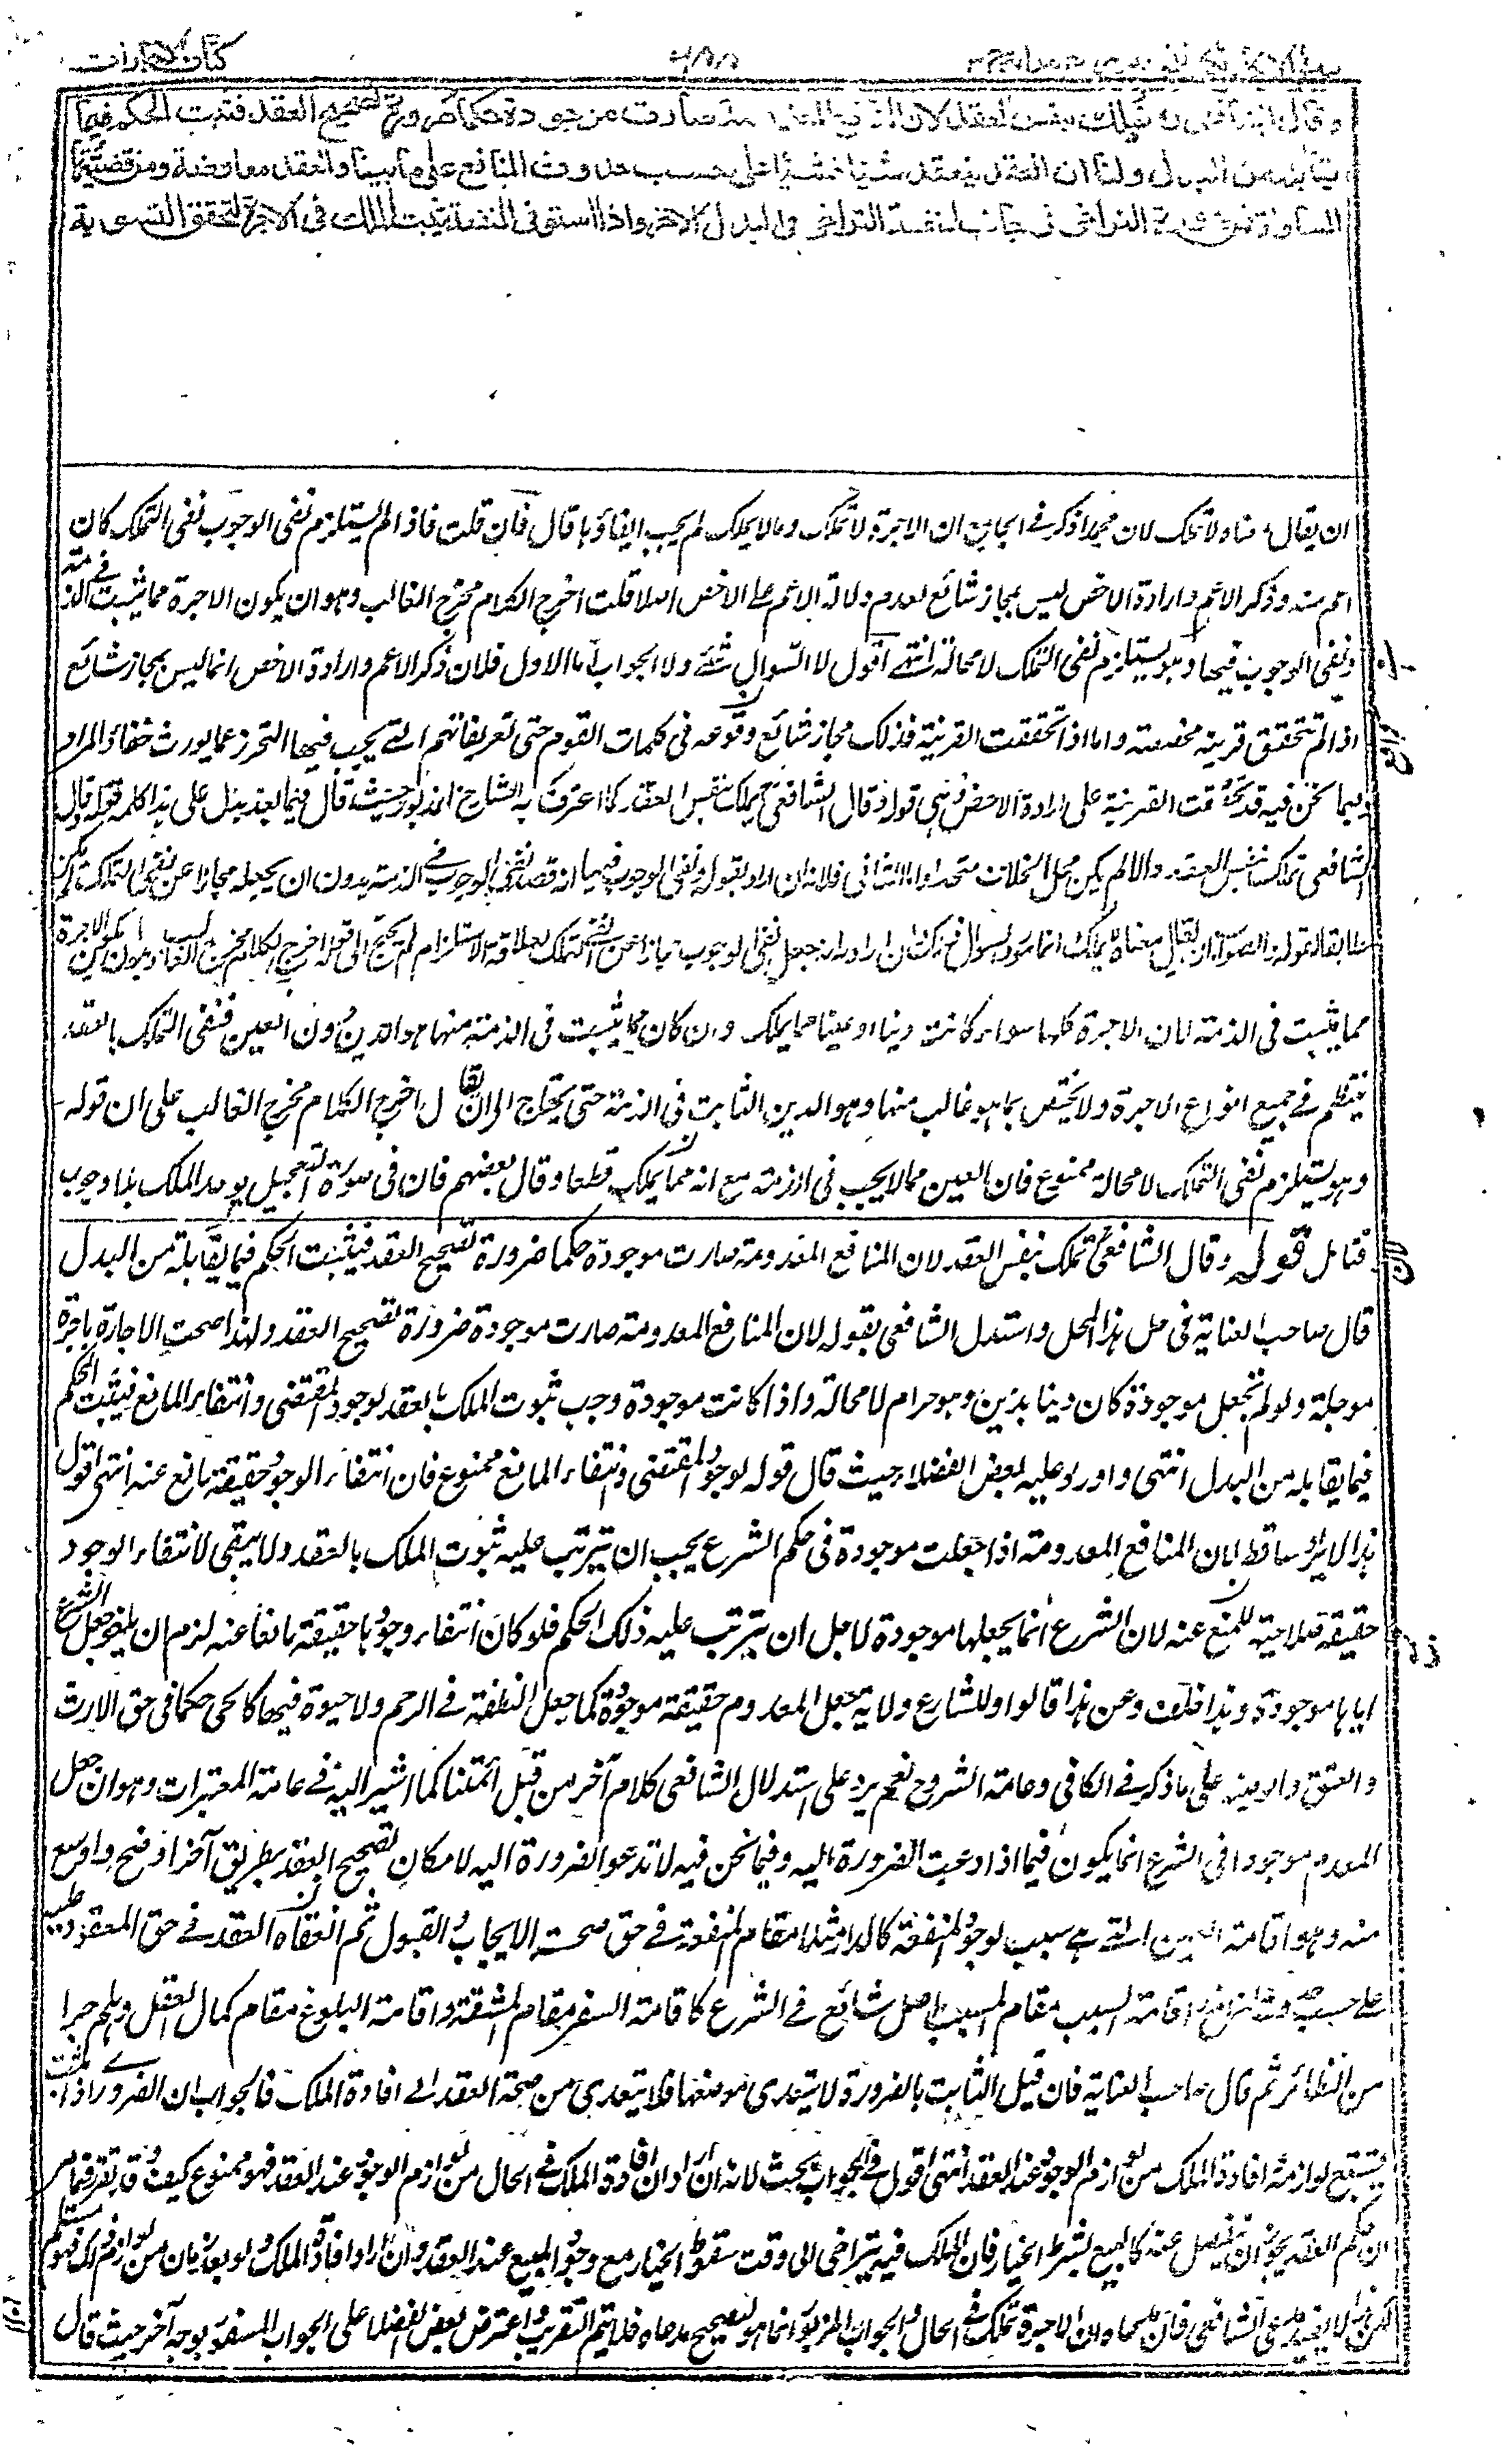 كتاب الاجارات
وقال الشافعي رح تملك بنفس العقد لان المنافع المعدومة صارت موجودة حكما ضرورة تصحيح العقد فثبت الحكم فيما
يقابله من البدل ولنا ان العقد ينعقد شيئا فشيئا على حسب حدوث المنافع على ما بينا والعقد معاوضة ومن قضيتها
المساواة فمن ضرورة التراخي في جانب المنفعة التراخي في البدل الاخر واذا استوفى المنفعة يثبت الملك في الاجرة لتحقق التسوية
ان يقال معناه لا تملك لان محمدا ذكر في الجامع ان الاجرة لا تملك وما لا يملك لم يجب ايفاؤها قال فان قلت فاذا لم يستلزم نفى الوجوب نفى التملك كان
اعم منه وذكر الاعم وارادة الاخص ليس بمجاز شائع لعدم دلالة الاعم على الاخص اصلا قلت اخرج الكلام مخرج الغالب وهو ان يكون الاجرة مما يثبت في الذمة
ونفى الوجوب فيها وهو يستلزم نفى التملك لا محالة انتهى اقول لا السؤال شئ ولا الجواب اما الاول فلان ذكر الاعم وارادة الاخص انما ليس بمجاز شائع
اذا لم تتحقق قرينة مخصصة واما اذا تحققت القرينة فذلك مجاز شائع وقوعه في كلمات القوم حتى تعريفاتهم التي يجب فيها التحرز عما يورث خفاء المراد
وفيما نحن فيه قد تحققت القرينة على ارادة الاخص وهي قوله وقال الشافعي تملك بنفس العقد كما اعترف به الشارح المذكور حيث قال فيما بعد يدل على هذا كله قوله وقال
الشافعي تملك بنفس العقد والا لم يكن محل الخلاف متحدا واما الثاني فلانه ان اراد بقوله ونفى الوجوب فيها انه قصد نفى الوجوب في الذمة بدون ان يجعله مجازا عن نفى التملك لم يكن
مطابقا لقوله والصواب ان يقال معناه لا يملك انما مورد السؤال ذلك وان اراد انه جعل نفى الوجوب مجازا عن نفى التملك بعلاقة الاستلزام لم يحتج الى قوله اخرج الكلام مخرج الغالب وهو ان يكون الاجرة
مما يثبت في الذمة لان الاجرة كلها سواء كانت دينا او عينا مما يملك وان كان ما يثبت في الذمة منها هو الدين دون العين فنفى التملك بالعقد
ينتظم في جميع انواع الاجرة ولا يختص بما هو غالب منها وهو الدين الثابت في الذمة حتى يحتاج الى ان يقال اخرج الكلام مخرج الغالب على ان قوله
وهو يستلزم نفى التملك لا محالة ممنوع فان العين مما لا يجب في الذمة مع انه مما يملك قطعا وقال بعضهم فان في صورة التعجيل يوجد الملك بلا وجوب
فتامل قوله وقال الشافعي تملك بنفس العقد لان المنافع المعدومة صارت موجودة حكما ضرورة تصحيح العقد فيثبت الحكم فيما يقابله من البدل
قال صاحب العناية في حل هذا المحل واستدل الشافعي بقوله لان المنافع المعدومة صارت موجودة ضرورة تصحيح العقد ولهذا صحت الاجارة باجرة
موجلة ولو لم تجعل موجودة كان دينا بدين وهو حرام لا محالة واذا كانت موجودة وجب ثبوت الملك بالعقد لوجود المقتضى وانتفاء المانع فيثبت الحكم
فيما يقابله من البدل انتهى واورد عليه بعض الفضلاء حيث قال قوله لوجود المقتضى وانتفاء المانع ممنوع فان انتفاء الوجود حقيقة مانع عنه انتهى اقول
هذا الايراد ساقط لان المنافع المعدومة اذا جعلت موجودة في حكم الشرع يجب ان يترتب عليه ثبوت الملك بالعقد ولا يبقى لانتفاء الوجود
حقيقة صلاحية للمنع عنه لان الشرع انما يجعلها موجودة لاجل ان يترتب عليه ذلك الحكم فلو كان انتفاء وجودها حقيقة مانعا عنه لزم ان يلغو جعل الشرع
اياها موجودة وهذا خلف وعن هذا قالوا وللشارع ولاية جعل المعدوم حقيقة موجودة كما جعل النطفة في الرحم ولا حيوة فيها كالحي حكما في حق الارث
والعتق والوصية على ما ذكر في الكافي وعامة الشروح نعم يرد على استدلال الشافعي كلام آخر من قبل ائمتنا كما اشير اليه في عامة المعتبرات وهو ان جعل
المعدوم موجودا في الشرع انما يكون فيما اذا دعت الضرورة اليه وفيما نحن فيه لا تدعو الضرورة اليه لامكان تصحيح العقد بطريق آخر اوضح واوسع
منه وهو اقامة العين التي هي سبب لوجود المنفعة كالدار مثلا مقام المنفعة في حق صحة الايجاب والقبول ثم انعقاد العقد في حق المعقود عليه
على حسب حدوث المنافع واقامة السبب مقام المسبب اصل شائع في الشرع كاقامة السفر مقام المشقة واقامة البلوغ مقام كمال العقل وهلم جرا
من النظائر ثم قال صاحب العناية فان قيل الثابت بالضرورة لا يتعدى موضعها فلا يتعدى من صحة العقد الى افادة الملك فالجواب ان الضروري اذا ثبت
يستتبع لوازمه وافادة الملك من لوازم الوجود عند العقد انتهى اقول في الجواب بحث لانه ان اراد ان افادة الملك في الحال من لوازم الوجود عند العقد فهو ممنوع كيف وقد تقرر فيما مر
ان حكم العقد يجوز ان يفصل عنه كالبيع بشرط الخيار فان الملك فيه يتراخى الى وقت سقوط الخيار مع وجود المبيع عند العقد وان اراد افادة الملك ولو بعد زمان من لوازم ذلك فهو مسلم
لكن هذا لا يفيد مدعى الشافعي فان مدعاه ان الاجرة تملك في الحال والجواب المزبور انما هو لتصحيح مدعاه فلا يتم التقريب واعترض بعض الفضلاء على الجواب المسفور بوجه آخر حيث قال